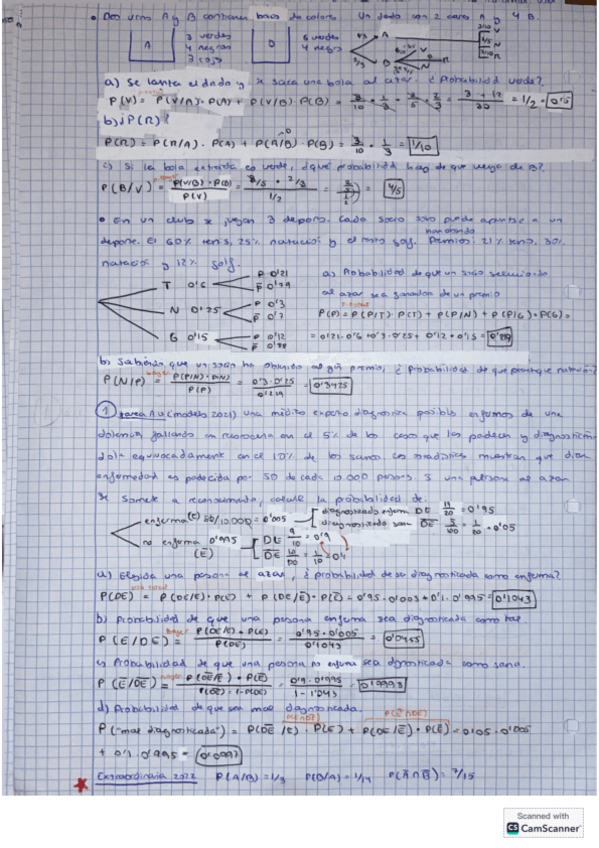 • Dos urnas A y B contienen bolas de colores. Un dado con 2 caras A y 4 B.
A 3 verdes 4 negras 3 rojas
B 6 verdes 4 negras
a) Se lanza el dado y se saca una bola al azar. ¿Probabilidad verde?
P(V) = P(V/A)·P(A) + P(V/B)·P(B) = 3/10 · 1/3 + 3/5 · 2/3 = 3 + 12 / 30 = 1/2 = 0'5
b) ¿P(R)?
P(R) = P(R/A)·P(A) + P(R/B)·P(B) = 3/10 · 1/3 = 1/10
c) Si la bola extraída es verde, ¿qué probabilidad hay de que venga de B?
P(B/V) = P(V/B)·P(B) / P(V) = 3/5 · 2/3 / 1/2 = = 4/5
• En un club se juegan 3 deportes. Cada socio solo puede apuntarse a un
deporte. El 60% tenis, 25% natación y el resto golf. Premios: 21% tenis, 30%
natación y 12% golf.
T 0'6 P 0'21
N 0'25 P 0'3
G 0'15 P 0'12
a) Probabilidad de que un socio seleccionado
al azar sea ganador de un premio
P(P) = P(P/T)·P(T) + P(P/N) + P(P/G)·P(G) =
= 0'21·0'6 + 0'3·0'25 + 0'12 + 0'15 =
b) Sabiendo que un socio ha obtenido algún premio, ¿probabilidad de que
P(N/P) = P(P/N)·P(N) / P(P) = 0'3·0'25 /
① tarea (modelo 2021) una médico experto diagnostica posibles enfermos de una
dolencia fallando en reconocerla en el 5% de los casos que los padecen y diagnosticán
dola equivocadamente en el 10% de los sanos. Las estadísticas muestran que dicha
enfermedad es padecida por 50 de cada 10.000 personas. Si una persona al azar
se somete a reconocimiento, calcule la probabilidad de:
enferma (E) 50/10.000 = 0'005 diagnosticado enfermo DE 19/20 = 0'95
diagnosticado sano D̅E̅ 5/100 = 1/20 = 0'05
no enferma 0'995 (E̅) DE 9/10 = 0'9
D̅E̅ 10/100 = 1/10
a) Elegida una persona al azar, ¿probabilidad de ser diagnosticada como enferma?
P(DE) = P(DE/E)·P(E) + P(DE/E̅)·P(E̅) = 0'95·0'005 + 0'1·0'995 = 0'1043
b) Probabilidad de que una persona enferma sea diagnosticada como tal.
P(E/DE) = P(DE/E)·P(E) / P(DE) = 0'95·0'005 / 0'1043 = 0'0455
c) Probabilidad de que una persona no enferma sea diagnosticada como sana.
P(E̅/D̅E̅) = P(D̅E̅/E̅)·P(E̅) / P(D̅E̅) = 1-P(DE) = 0'9·0'995 / 1-1'043 = 0'9993
d) Probabilidad de que sea mal diagnosticada.
P("mal diagnosticada") = P(D̅E̅/E)·P(E) + P(DE/E̅)·P(E̅) = 0'05·0'005
+ 0'1·0'995 =
Extraordinaria 2022 P(A/B) = 1/3 P(B/A) = P(A̅∩B̅) = 7/15
Scanned with
CS CamScanner